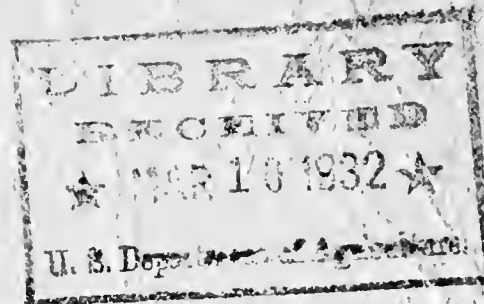 LIBRARY
RECEIVED
★ 10 1932 ★
U. S. Department of Agriculture